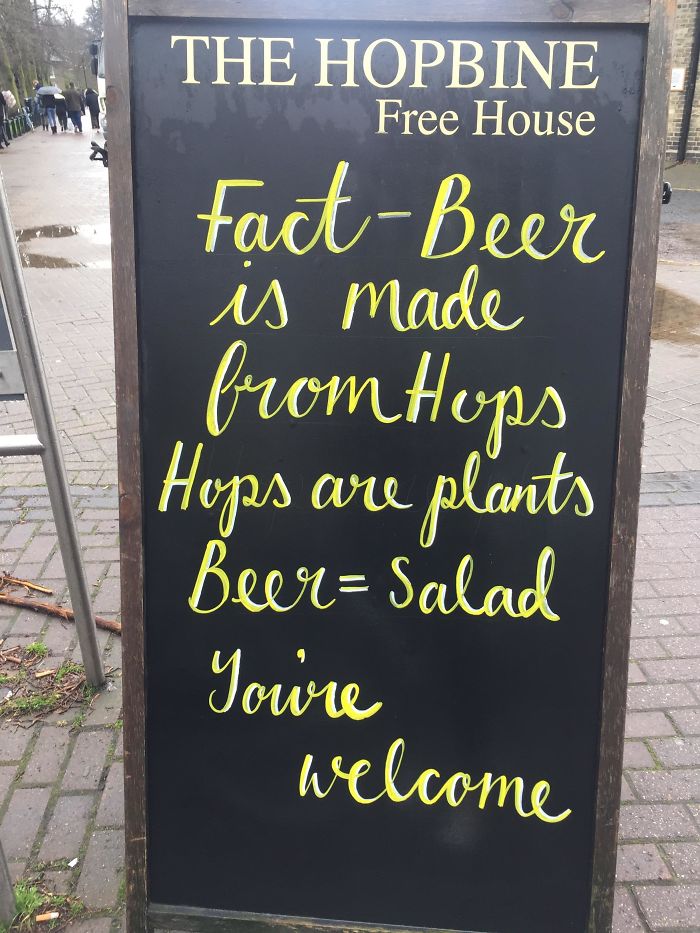 THE HOPBINE
Free House
Fact - Beer
is made
from Hops
Hops are plants
Beer = Salad
You're
welcome